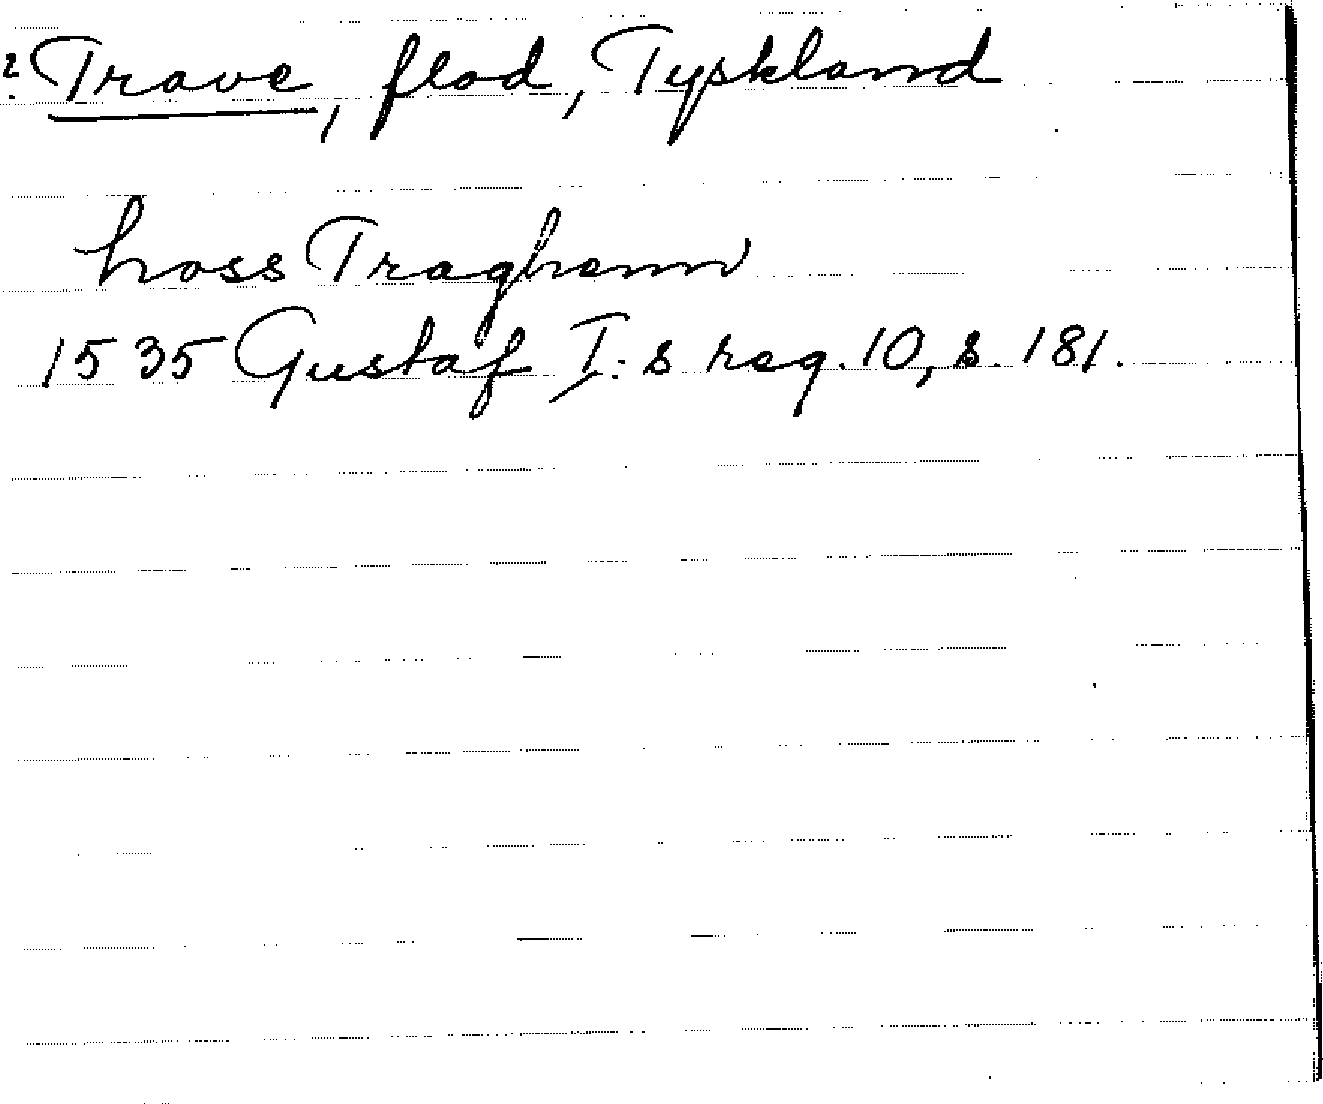 ? Trave, flod, Tyskland
hoss Traghenn
1535 Gustaf I:s reg. 10, s. 181.